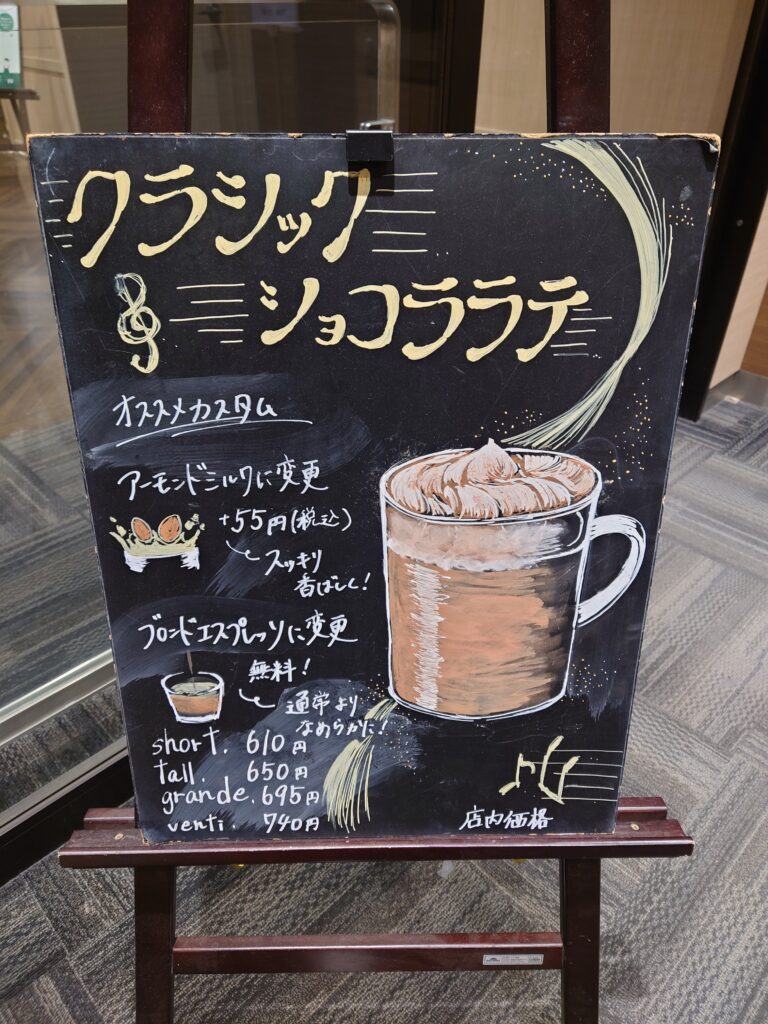 クラシック
ショコララテ
オススメカスタム
アーモンドミルクに変更
+55円(税込)
スッキリ
香ばしく!
ブロンドエスプレッソに変更
無料!
通常より
なめらかに!
short. 610円
tall. 650円
grande. 695円
venti. 740円
店内価格